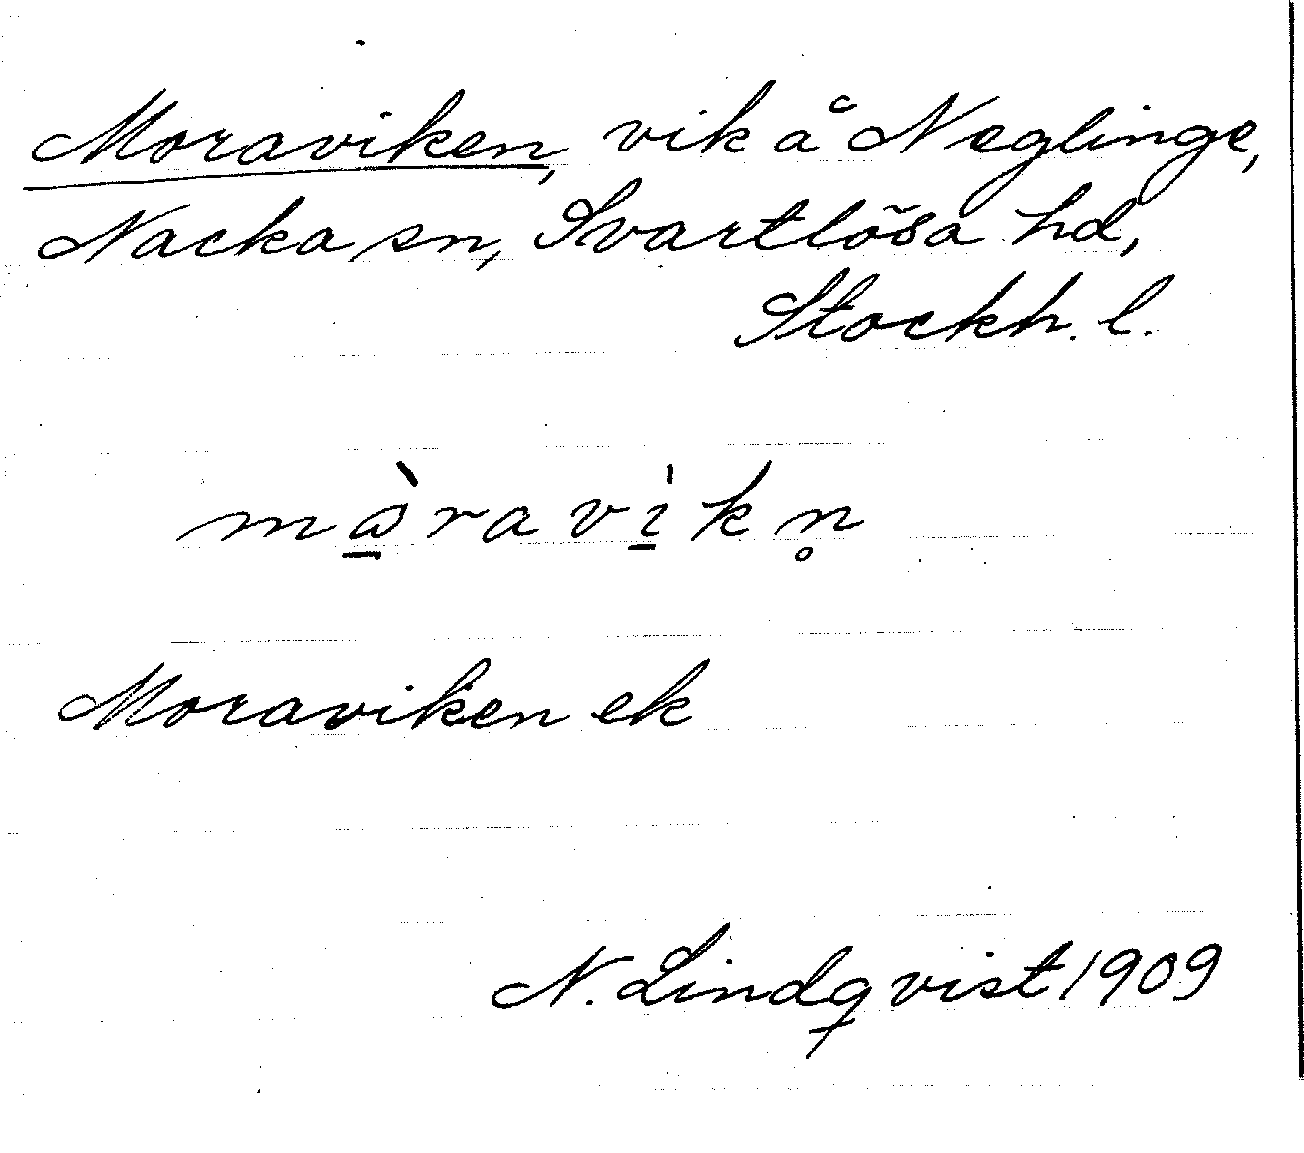 Moraviken, vik å Neglinge,
Nacka sn, Svartlösa hd,
Stockh. l.
mὼ̱ravi̱̍kn̥
Moraviken ek
N. Lindqvist 1909